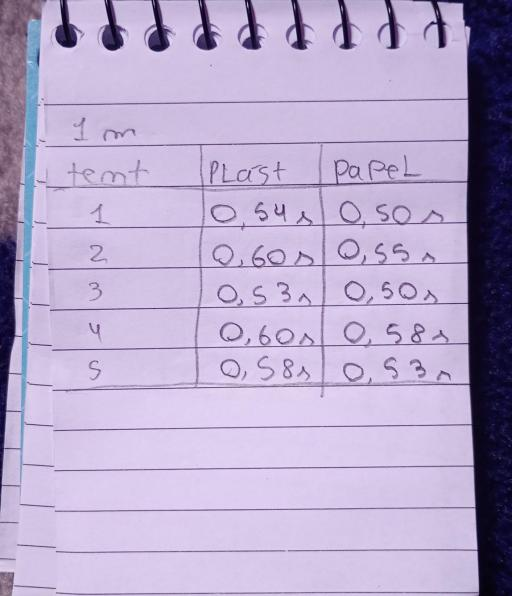 1 m
tent PLast PaPeL
1 0,54s 0,50s
2 0,60s 0,55s
3 0,53s 0,50s
4 0,60s 0,58s
5 0,58s 0,53s